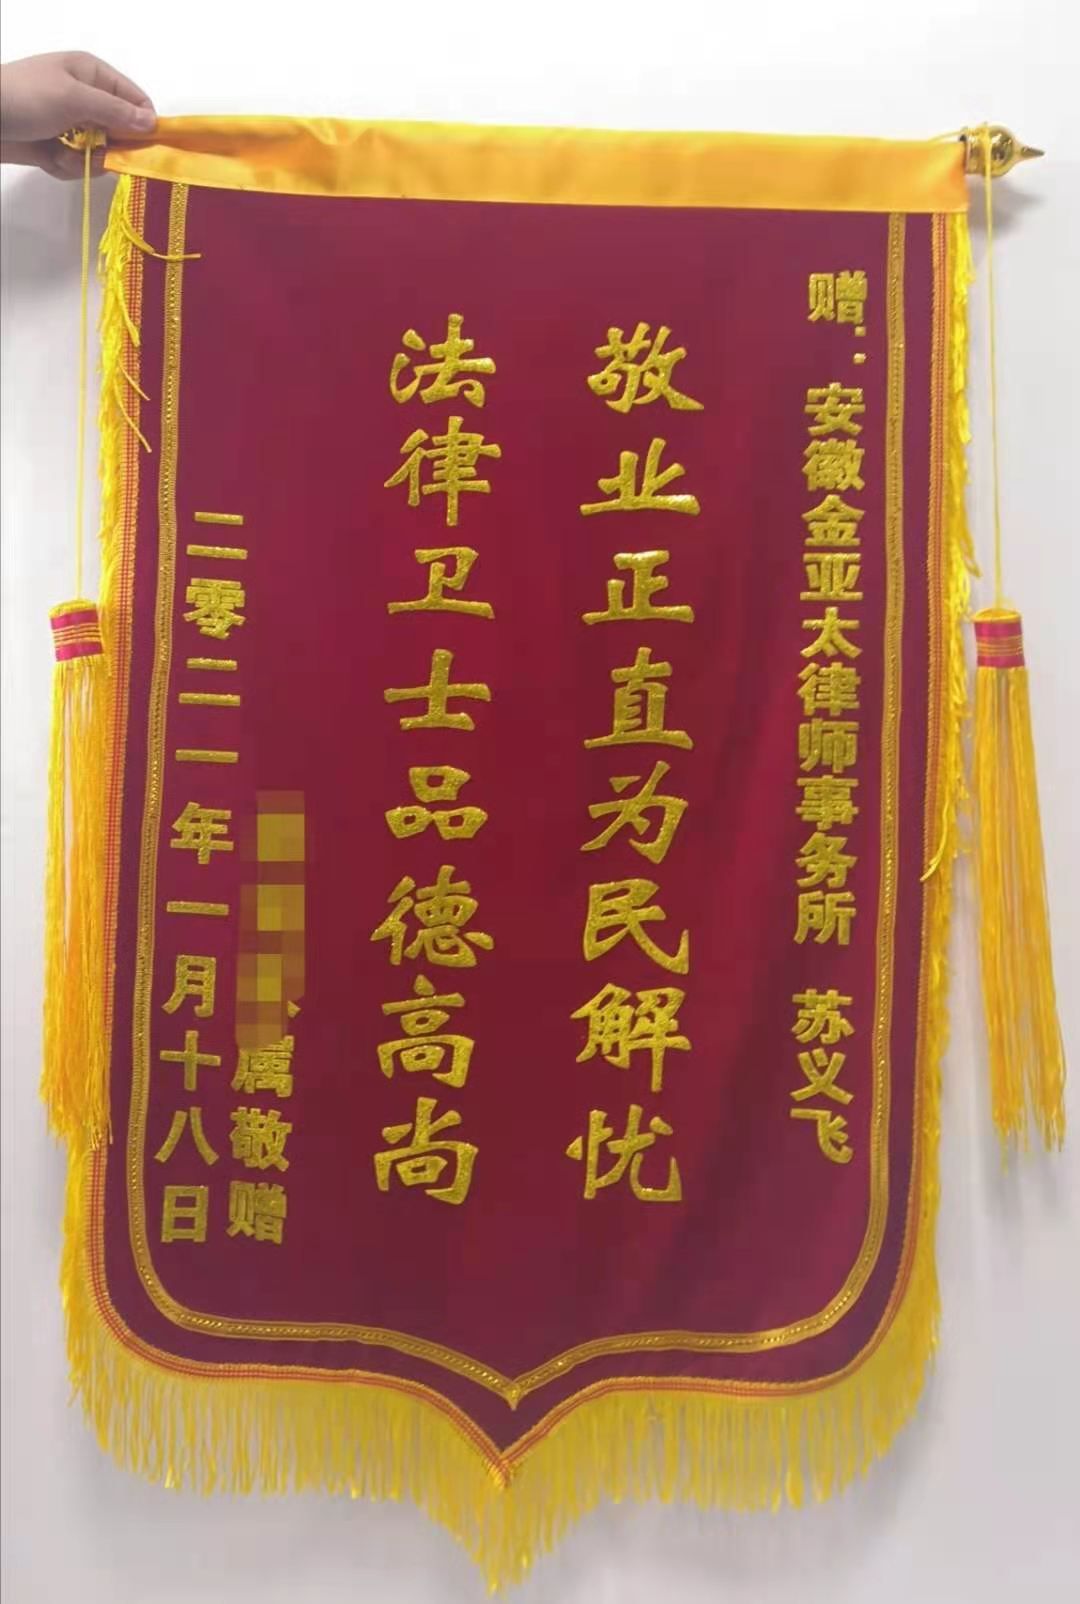 赠：安徽金亚太律师事务所 苏义飞
敬业正直为民解忧
法律卫士品德高尚
属敬赠
二零二一年一月十八日